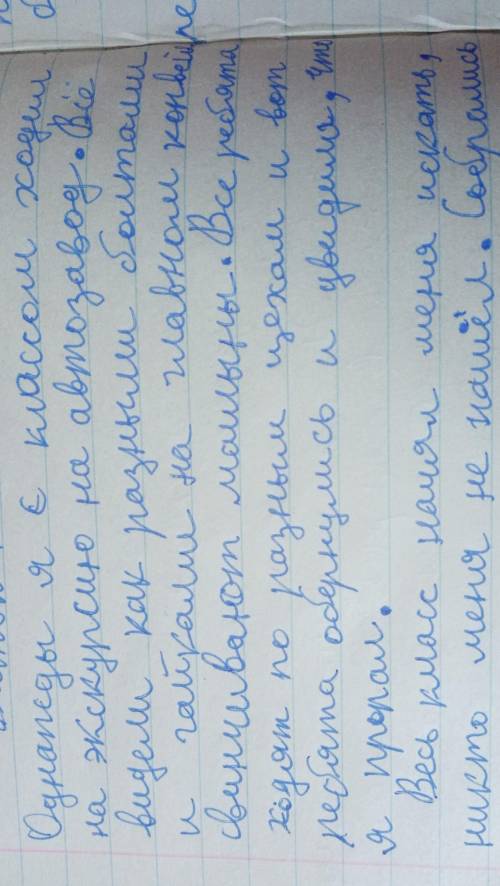 Однажды я с классом ходил
на экскурсию на автозавод. Всё
видели как разными болтами
и гайками на главном конвейере
свинчивают машыны. Все ребята
ходят по разным цехам и вот
ребята обернулись и увидили, что
я пропал.
Весь класс начял меня искать,
никто меня не нашёл. Собрались